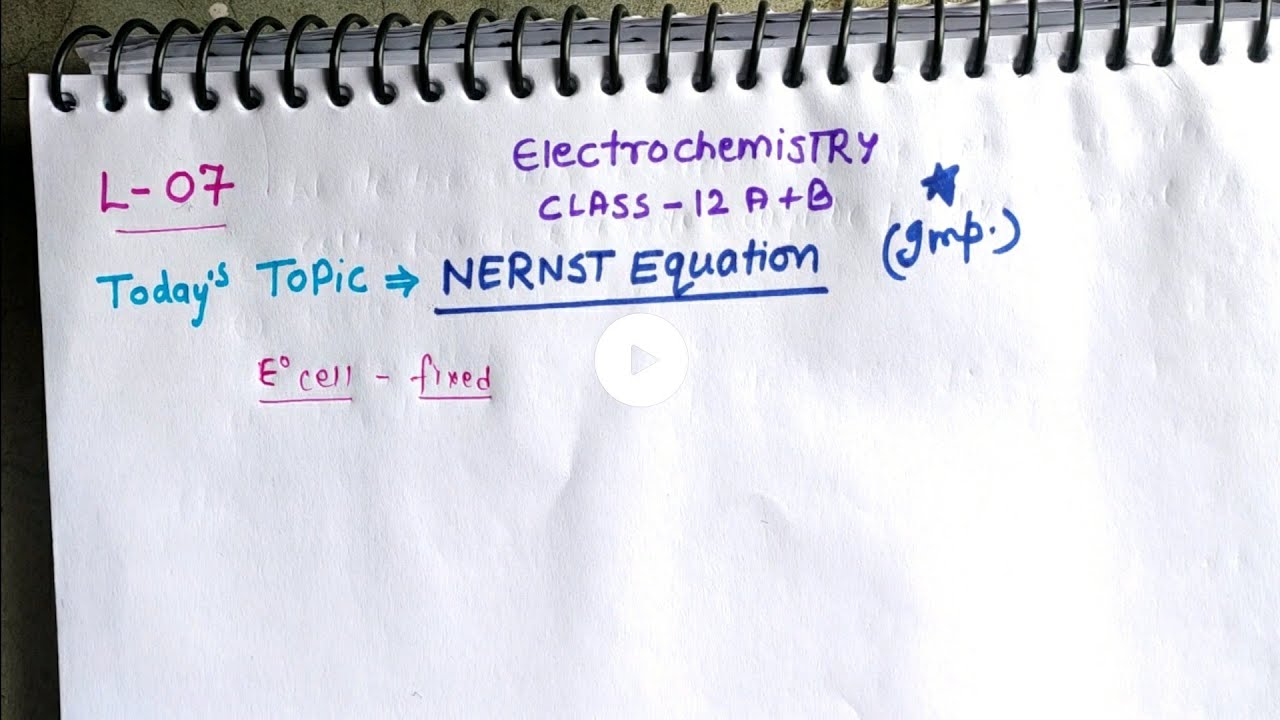 ElectrochemisTRY
L-07
CLASS - 12 A+B
Today's Topic ⇒ NERNST Equation (Imp.)
E° cell - fixed